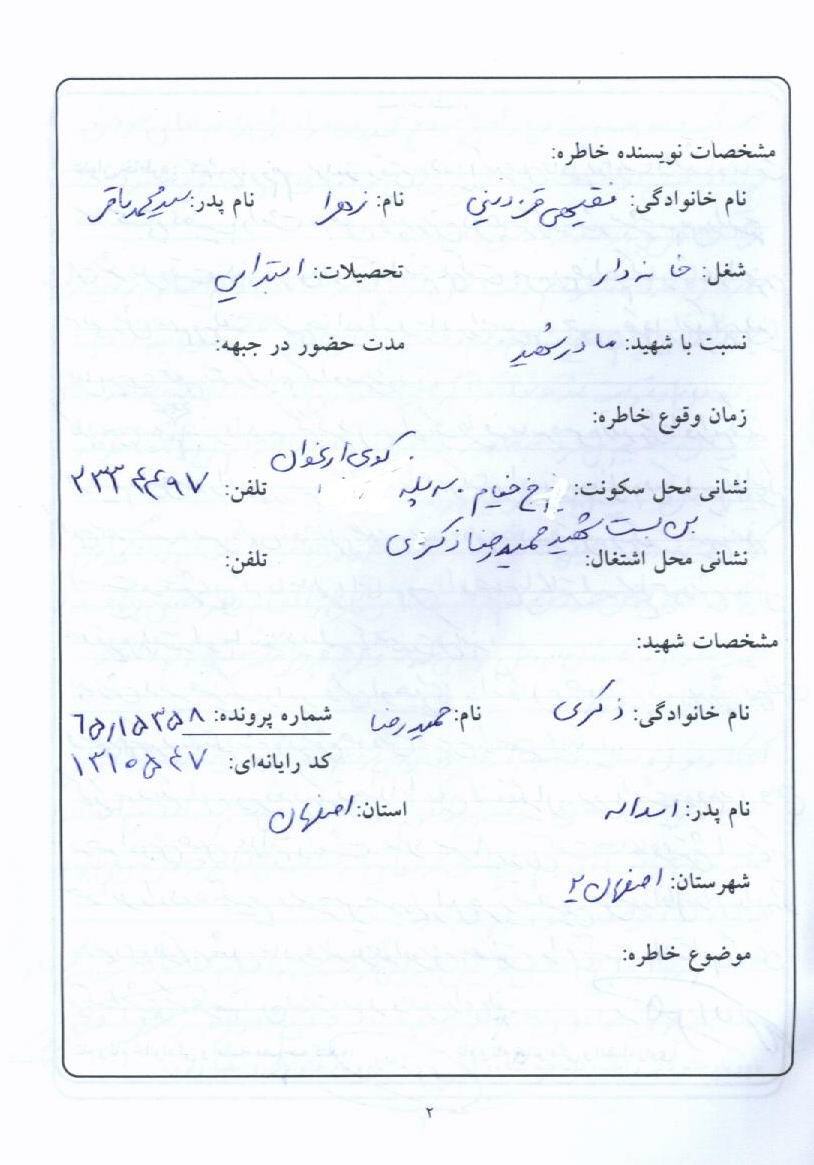 مشخصات نویسنده خاطره:
نام خانوادگی: فقیهی قزوینی نام: زهرا نام پدر: سید محمد باقر
شغل: خانه دار تحصیلات: ابتدایی
نسبت با شهید: مادر شهید مدت حضور در جبهه:
زمان وقوع خاطره:
کوی ارغوان
نشانی محل سکونت: خ خیام. سه پله تلفن: ۲۳۳۴۴۹۷
بن بست شهید حمیدرضا ذکری
نشانی محل اشتغال: تلفن:
مشخصات شهید:
نام خانوادگی: ذکری نام: حمیدرضا شماره پرونده: ۶۵۸۱۵۳۵۸
کد رایانه‌ای: ۱۳۱۰۵۴۷
نام پدر: اسداله استان: اصفهان
شهرستان: اصفهان ۲
موضوع خاطره:
۲